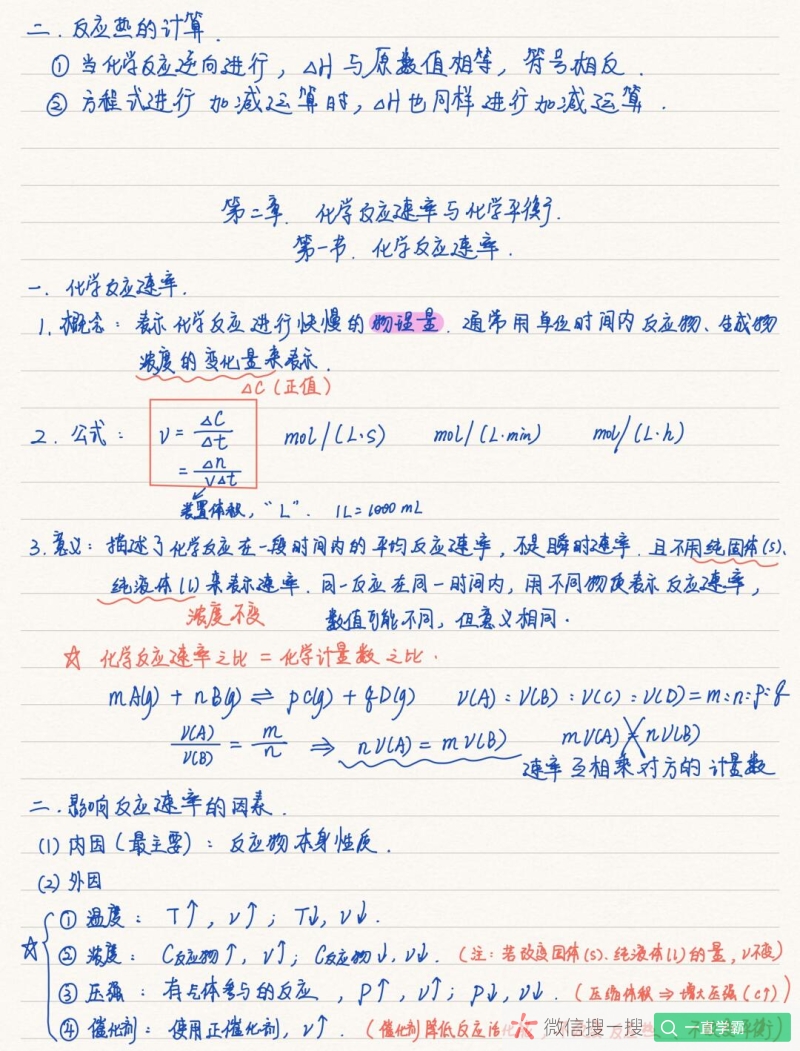 二.反应热的计算.
① 当化学反应逆向进行，△H与原数值相等，符号相反.
② 方程式进行加减运算时，△H也同样进行加减运算.
第二章. 化学反应速率与化学平衡.
第一节. 化学反应速率.
一. 化学反应速率.
1. 概念：表示化学反应进行快慢的物理量. 通常用单位时间内反应物、生成物
浓度的变化量来表示.
△C（正值）
2. 公式： v = △C/△t mol/(L·s) mol/(L·min) mol/(L·h)
= △n/V△t
装置体积，“L”. 1L=1000mL
3. 意义：描述了化学反应在一段时间内的平均反应速率，不是瞬时速率. 且不用纯固体(s)、
纯液体(l)来表示速率. 同一反应在同一时间内，用不同物质表示反应速率，
浓度不变 数值可能不同，但意义相同.
☆ 化学反应速率之比 = 化学计量数之比.
mA(g) + nB(g) ⇌ pC(g) + qD(g) v(A):v(B):v(C):v(D)=m:n:p:q
v(A)/v(B) = m/n ⇒ nv(A) = mv(B) mv(A) = nv(B)
速率互相乘对方的计量数
二.影响反应速率的因素.
(1) 内因(最主要)：反应物本身性质.
(2) 外因
☆ ① 温度： T↑，v↑；T↓，v↓.
② 浓度： C反应物↑，v↑；C反应物↓，v↓. (注：若改变固体(s)、纯液体(l)的量，v不变)
③ 压强：有气体参与的反应，P↑，v↑；P↓，v↓. (压缩体积⇒增大压强(c↑))
④ 催化剂：使用正催化剂，v↑. (催化剂降低反应活化
微信搜一搜 一直学霸